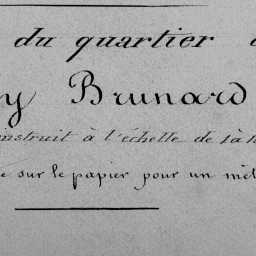 du quartier
y Brunard
nstruit à l'échelle de 1 à
sur le papier pour un mèt